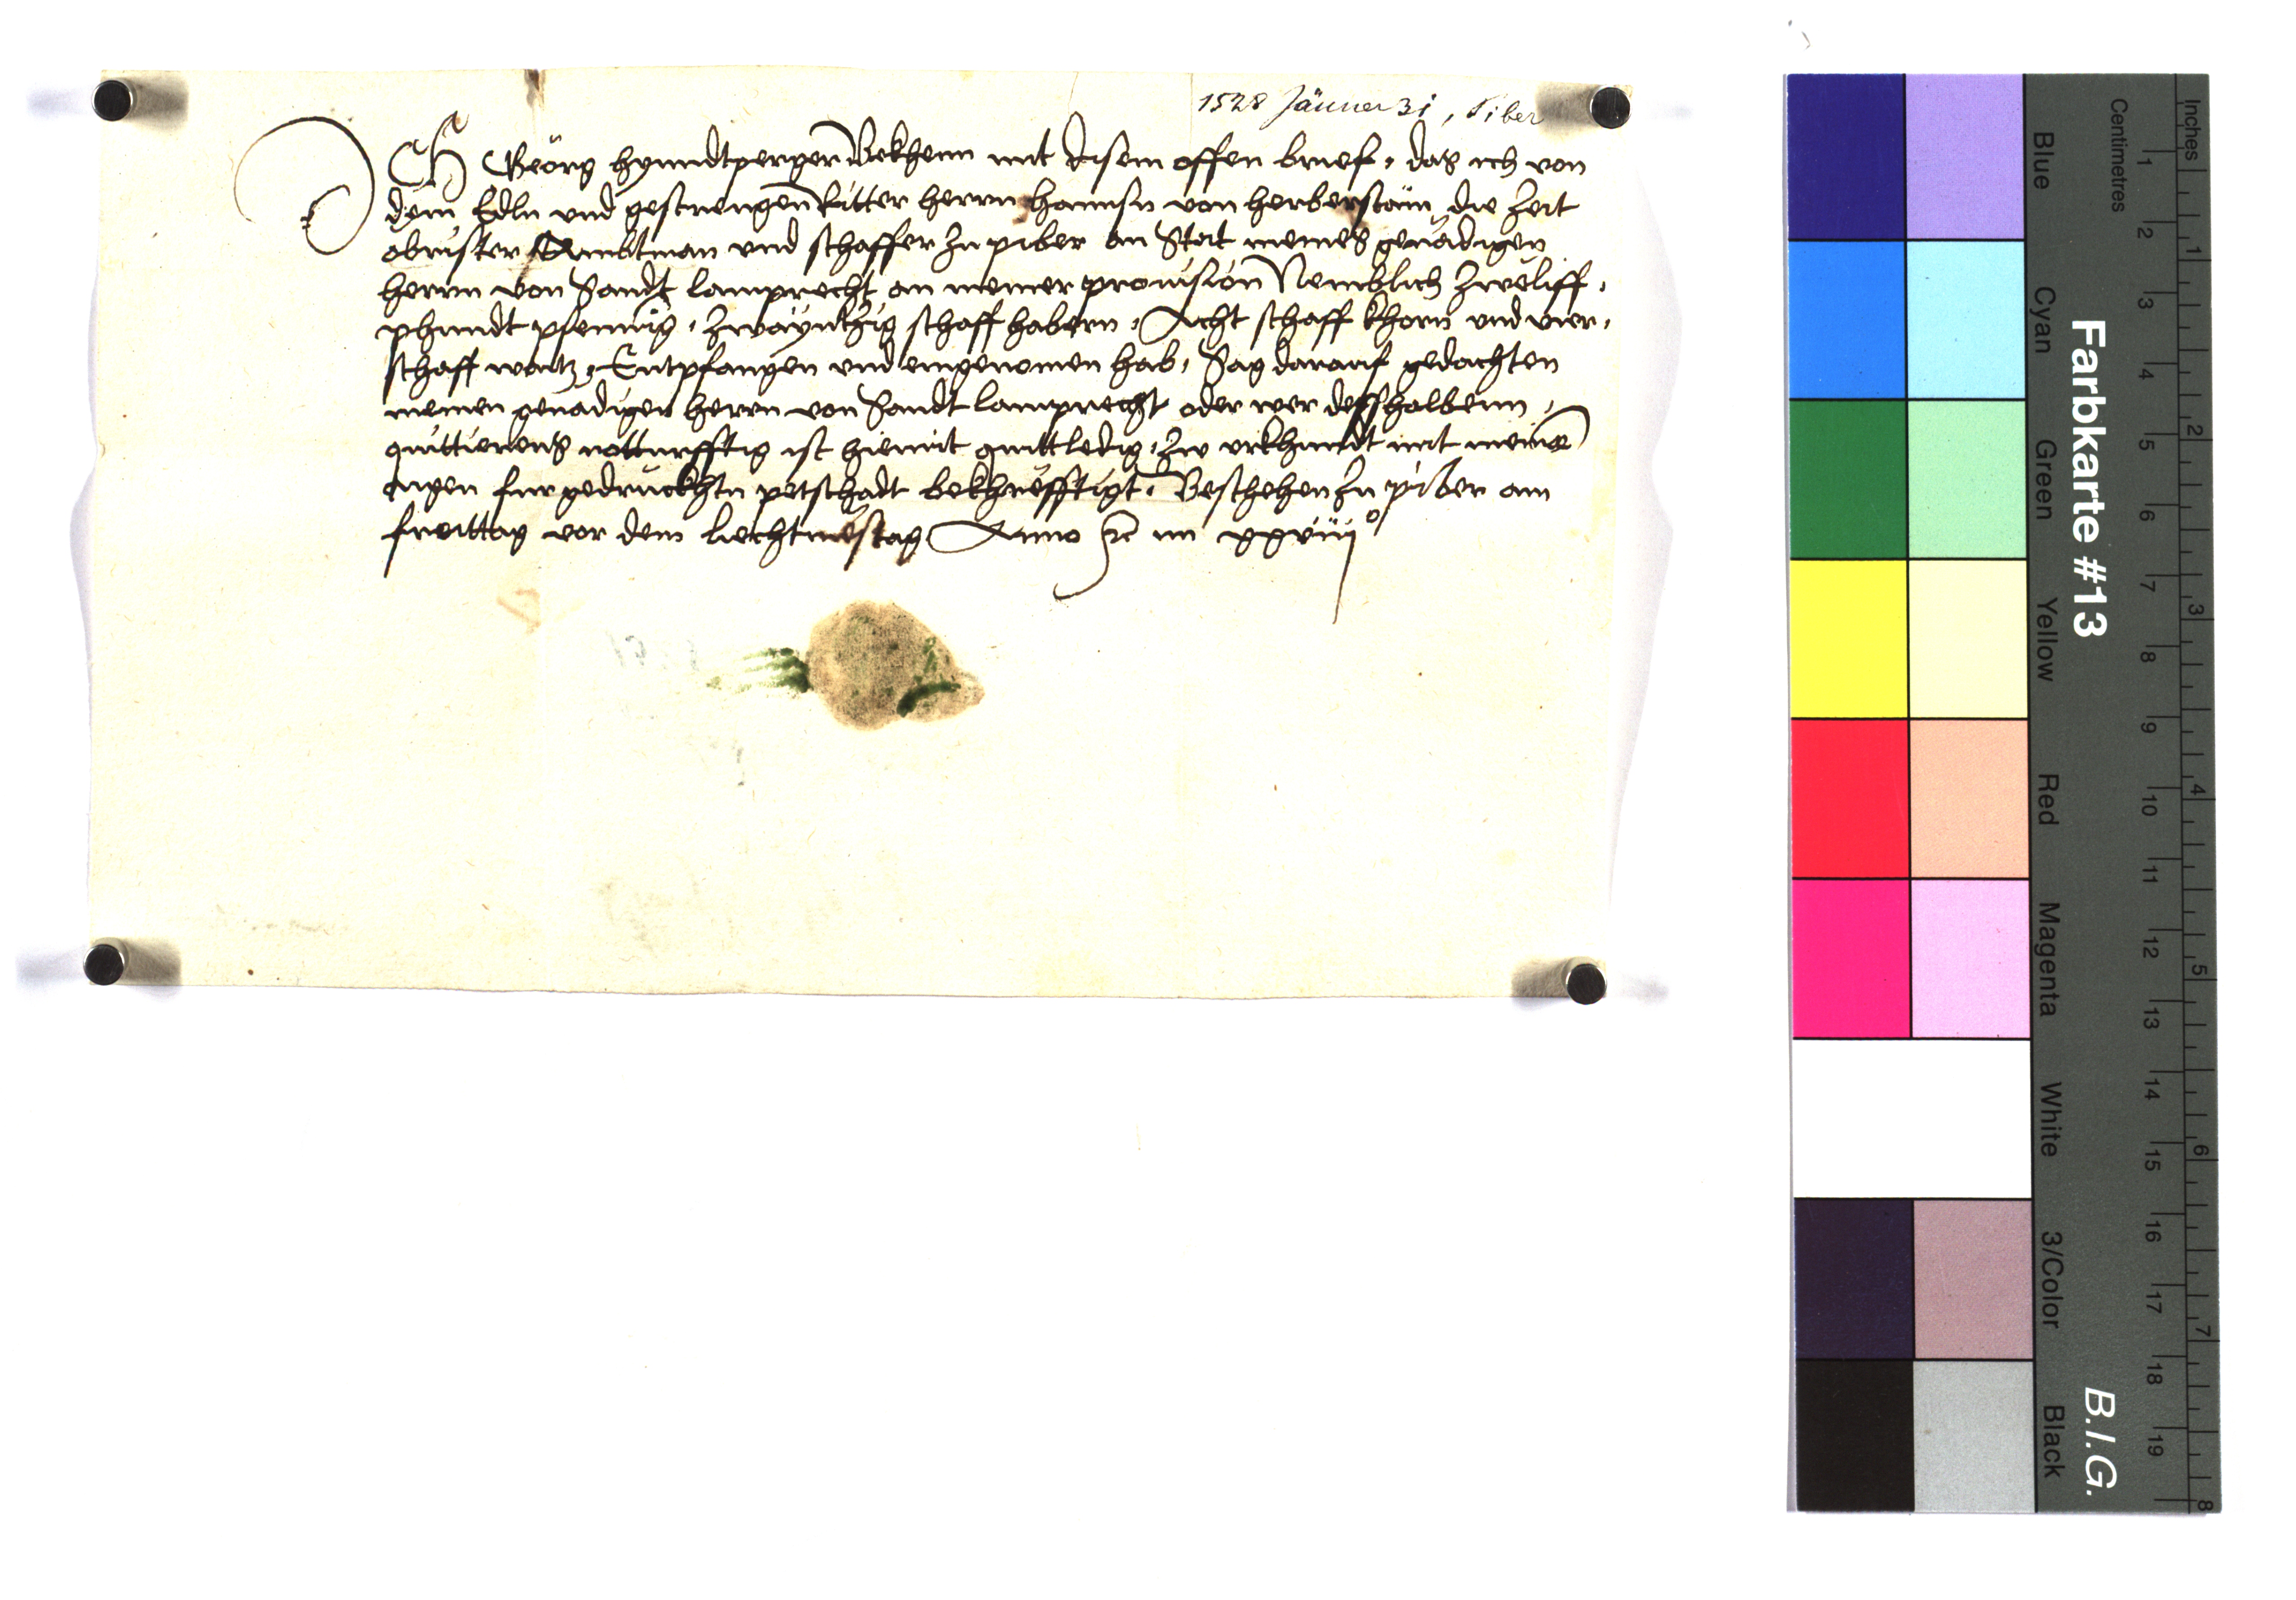 1528 Jänner 31, Piber
ICH Georg hyundtperger Bekhenn mit disem offen brief, das ich von
dem Edln und gestrengen Ritter herrn hannsn von herberstain die Zeit
obrister Ambtman und schaffer zu piber an Stat meines genadigen
herrn von Sandt lamprecht an meiner provision Nemblich Zweliff,
phundt pfennig, Zwayntzig schaff habern, Acht schaff khorn und vier,
schaff waitz, Entpfangen und eingenomen hab, Sag darauf gedachten
meinen genadigen herrn von Sandt lamprecht oder wer desshalbenn,
quittierens notturfftig ist hiemit quittledig, Zw urkhundt mit meinem
aigen furgedruckhtn petschadt bekhrefftigt, Beschehen zu piber am
freittag vor dem liechtmestag Anno &c im xxviijo
Farbkarte #13
B.I.G.
Blue
Cyan
Green
Yellow
Red
Magenta
White
3/Color
Black
Centimetres
1 2 3 4 5 6 7 8 9 10 11 12 13 14 15 16 17 18 19
Inches
1 2 3 4 5 6 7 8